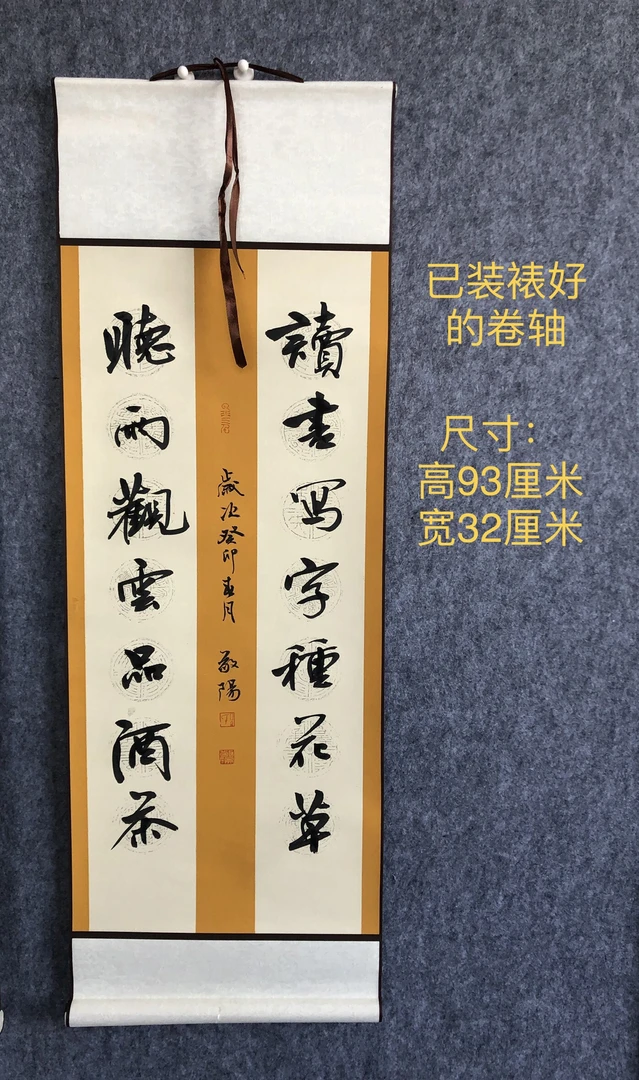 讀書写字種花草
聽雨觀雲品酒茶
歲次癸卯春月 敬陽
已装裱好
的卷轴
尺寸：
高93厘米
宽32厘米